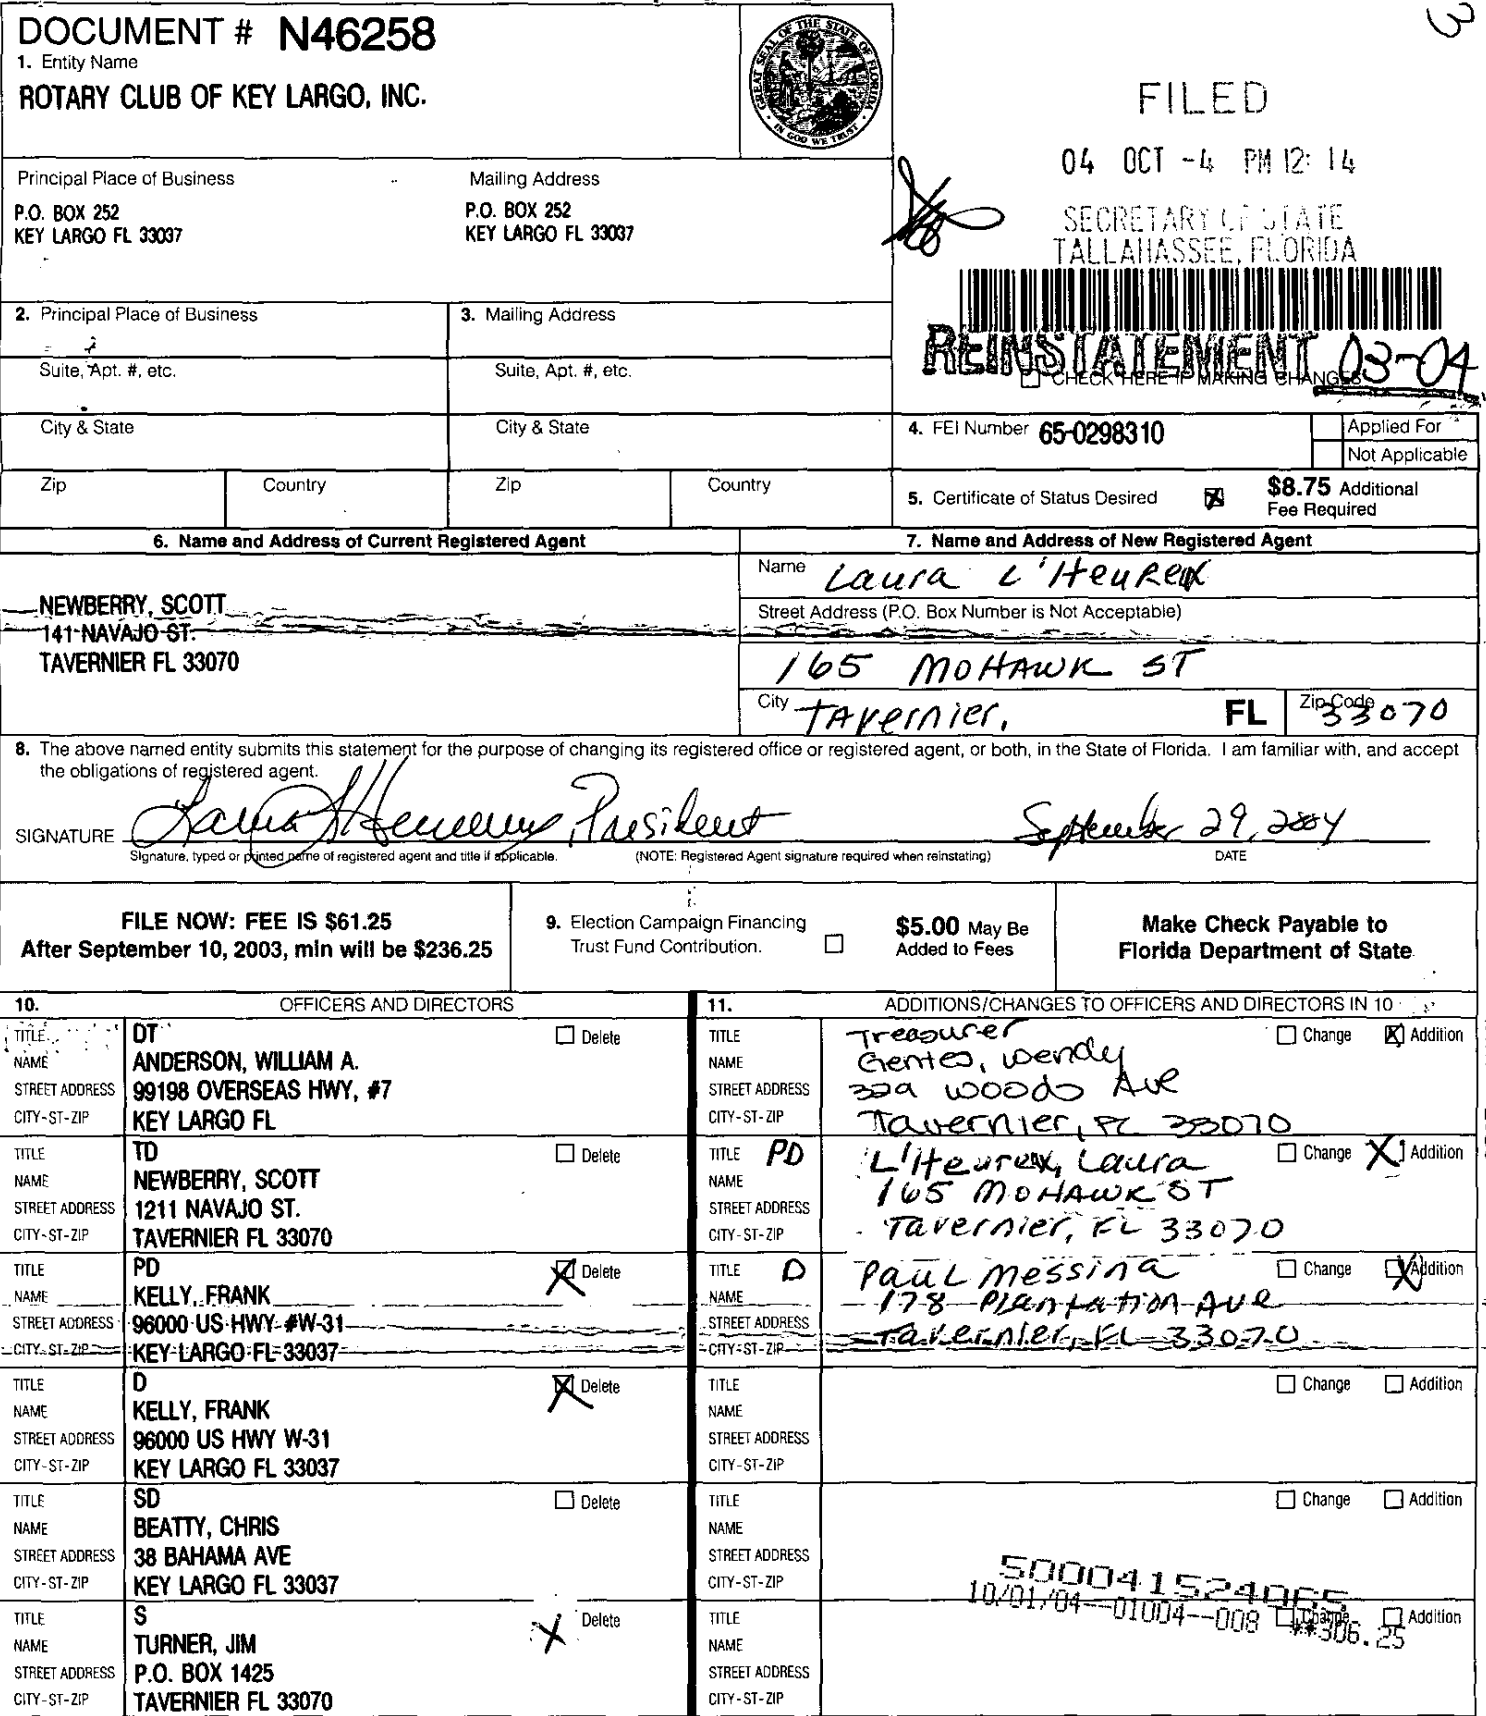 3
DOCUMENT # N46258
1. Entity Name
ROTARY CLUB OF KEY LARGO, INC.
GREAT SEAL OF THE STATE OF FLORIDA
IN GOD WE TRUST
FILED
04 OCT -4 PM 12: 14
SECRETARY OF STATE
TALLAHASSEE, FLORIDA
Principal Place of Business
P.O. BOX 252
KEY LARGO FL 33037
Mailing Address
P.O. BOX 252
KEY LARGO FL 33037
REINSTATEMENT 03-04
CHECK HERE IF MAKING CHANGES
2. Principal Place of Business
3. Mailing Address
Suite, Apt. #, etc.
Suite, Apt. #, etc.
City & State
City & State
Zip
Country
Zip
Country
4. FEI Number 65-0298310
Applied For
Not Applicable
5. Certificate of Status Desired
$8.75 Additional
Fee Required
6. Name and Address of Current Registered Agent
NEWBERRY, SCOTT
141 NAVAJO ST.
TAVERNIER FL 33070
7. Name and Address of New Registered Agent
Name Laura L'Heureux
Street Address (P.O. Box Number is Not Acceptable)
165 MOHAWK ST
City Tavernier, FL Zip Code 33070
8. The above named entity submits this statement for the purpose of changing its registered office or registered agent, or both, in the State of Florida. I am familiar with, and accept
the obligations of registered agent.
SIGNATURE Laura L'Heureux, President September 29, 2004
Signature, typed or printed name of registered agent and title if applicable. (NOTE: Registered Agent signature required when reinstating) DATE
FILE NOW: FEE IS $61.25
After September 10, 2003, min will be $236.25
9. Election Campaign Financing
Trust Fund Contribution.
$5.00 May Be
Added to Fees
Make Check Payable to
Florida Department of State
10. OFFICERS AND DIRECTORS
TITLE DT Delete
NAME ANDERSON, WILLIAM A.
STREET ADDRESS 99198 OVERSEAS HWY, #7
CITY-ST-ZIP KEY LARGO FL
TITLE TD Delete
NAME NEWBERRY, SCOTT
STREET ADDRESS 1211 NAVAJO ST.
CITY-ST-ZIP TAVERNIER FL 33070
TITLE PD Delete
NAME KELLY, FRANK
STREET ADDRESS 96000 US HWY #W-31
CITY-ST-ZIP KEY LARGO FL 33037
TITLE D Delete
NAME KELLY, FRANK
STREET ADDRESS 96000 US HWY W-31
CITY-ST-ZIP KEY LARGO FL 33037
TITLE SD Delete
NAME BEATTY, CHRIS
STREET ADDRESS 38 BAHAMA AVE
CITY-ST-ZIP KEY LARGO FL 33037
TITLE S Delete
NAME TURNER, JIM
STREET ADDRESS P.O. BOX 1425
CITY-ST-ZIP TAVERNIER FL 33070
11. ADDITIONS/CHANGES TO OFFICERS AND DIRECTORS IN 10
TITLE Treasurer Change Addition
NAME Gentes, Wendy
STREET ADDRESS 329 Woods Ave
CITY-ST-ZIP Tavernier, FL 33070
TITLE PD L'Heureux, Laura Change Addition
NAME 165 MOHAWK ST
STREET ADDRESS
CITY-ST-ZIP Tavernier, FL 33070
TITLE D Paul Messina Change Addition
NAME 178 Plantation Ave
STREET ADDRESS Tavernier, FL 33070
CITY-ST-ZIP
TITLE Change Addition
NAME
STREET ADDRESS
CITY-ST-ZIP
TITLE Change Addition
NAME
STREET ADDRESS
CITY-ST-ZIP
500041524065
10/01/04--01004--008 **306.25
TITLE Change Addition
NAME
STREET ADDRESS
CITY-ST-ZIP